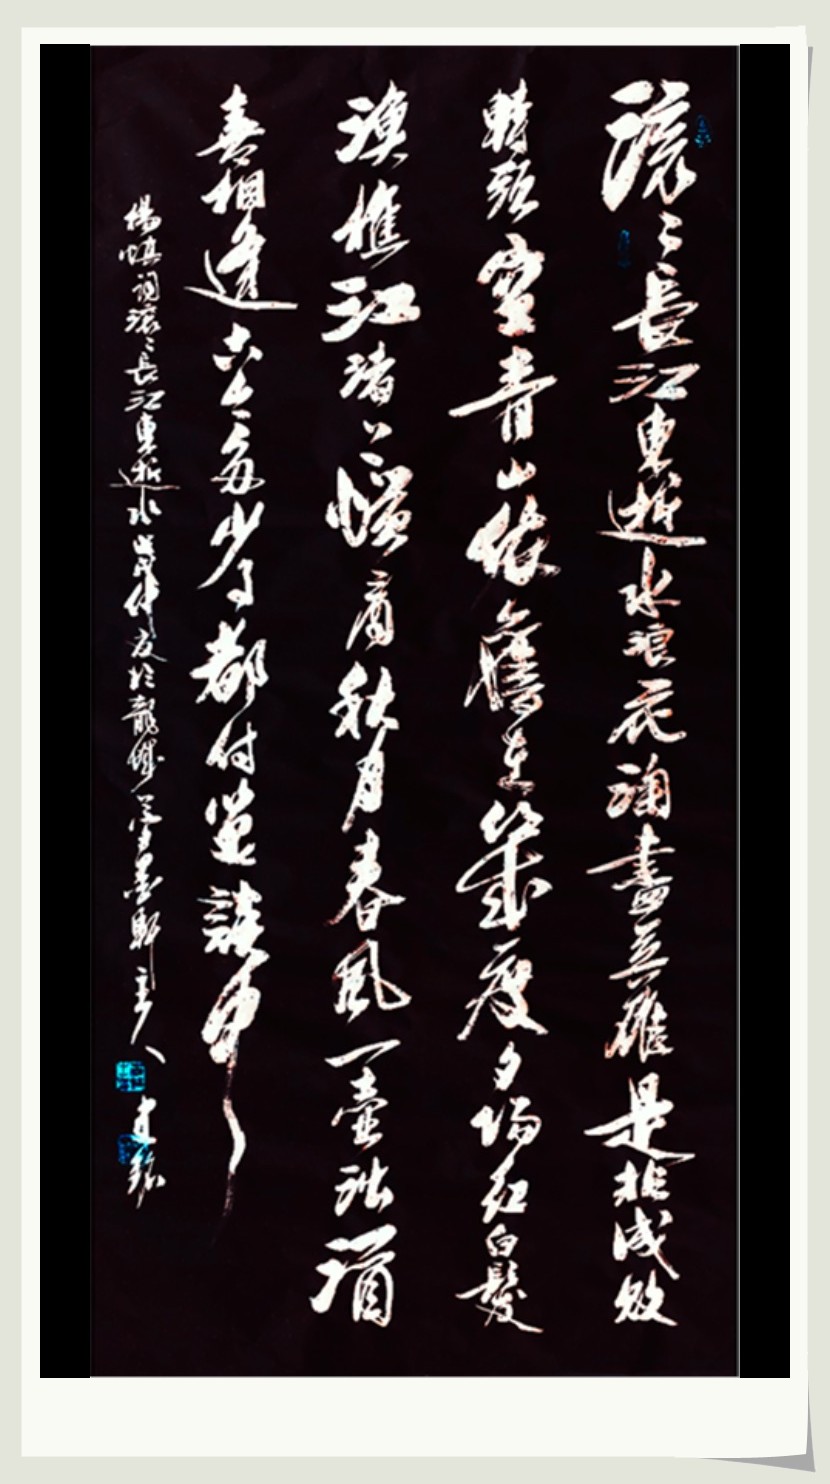 滚々長江東逝水浪花淘盡英雄是非成敗
轉頭空青山依舊在幾度夕陽紅白髮
漁樵江渚上慣看秋月春風一壺濁酒
喜相逢古今多少事都付笑談中
楊慎詞滚々長江東逝水戊戌仲夏於龍城墨軒主人